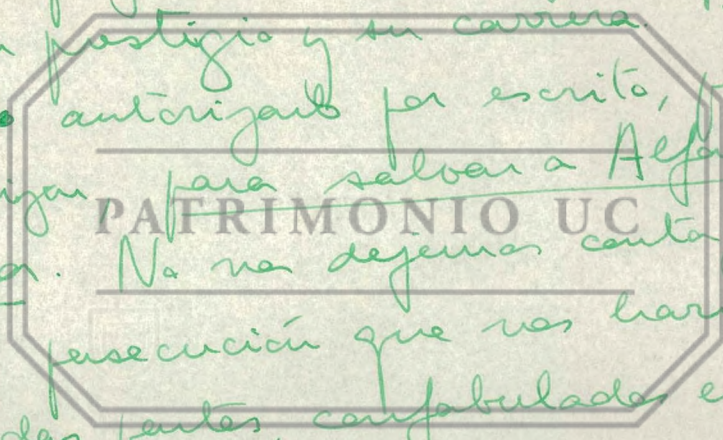 prestigio y su carrera.
autorizarlo por escrito,
para salvar a Alfa
PATRIMONIO UC
No nos dejemos conta
persecución que nos har
das partes, confabulados e